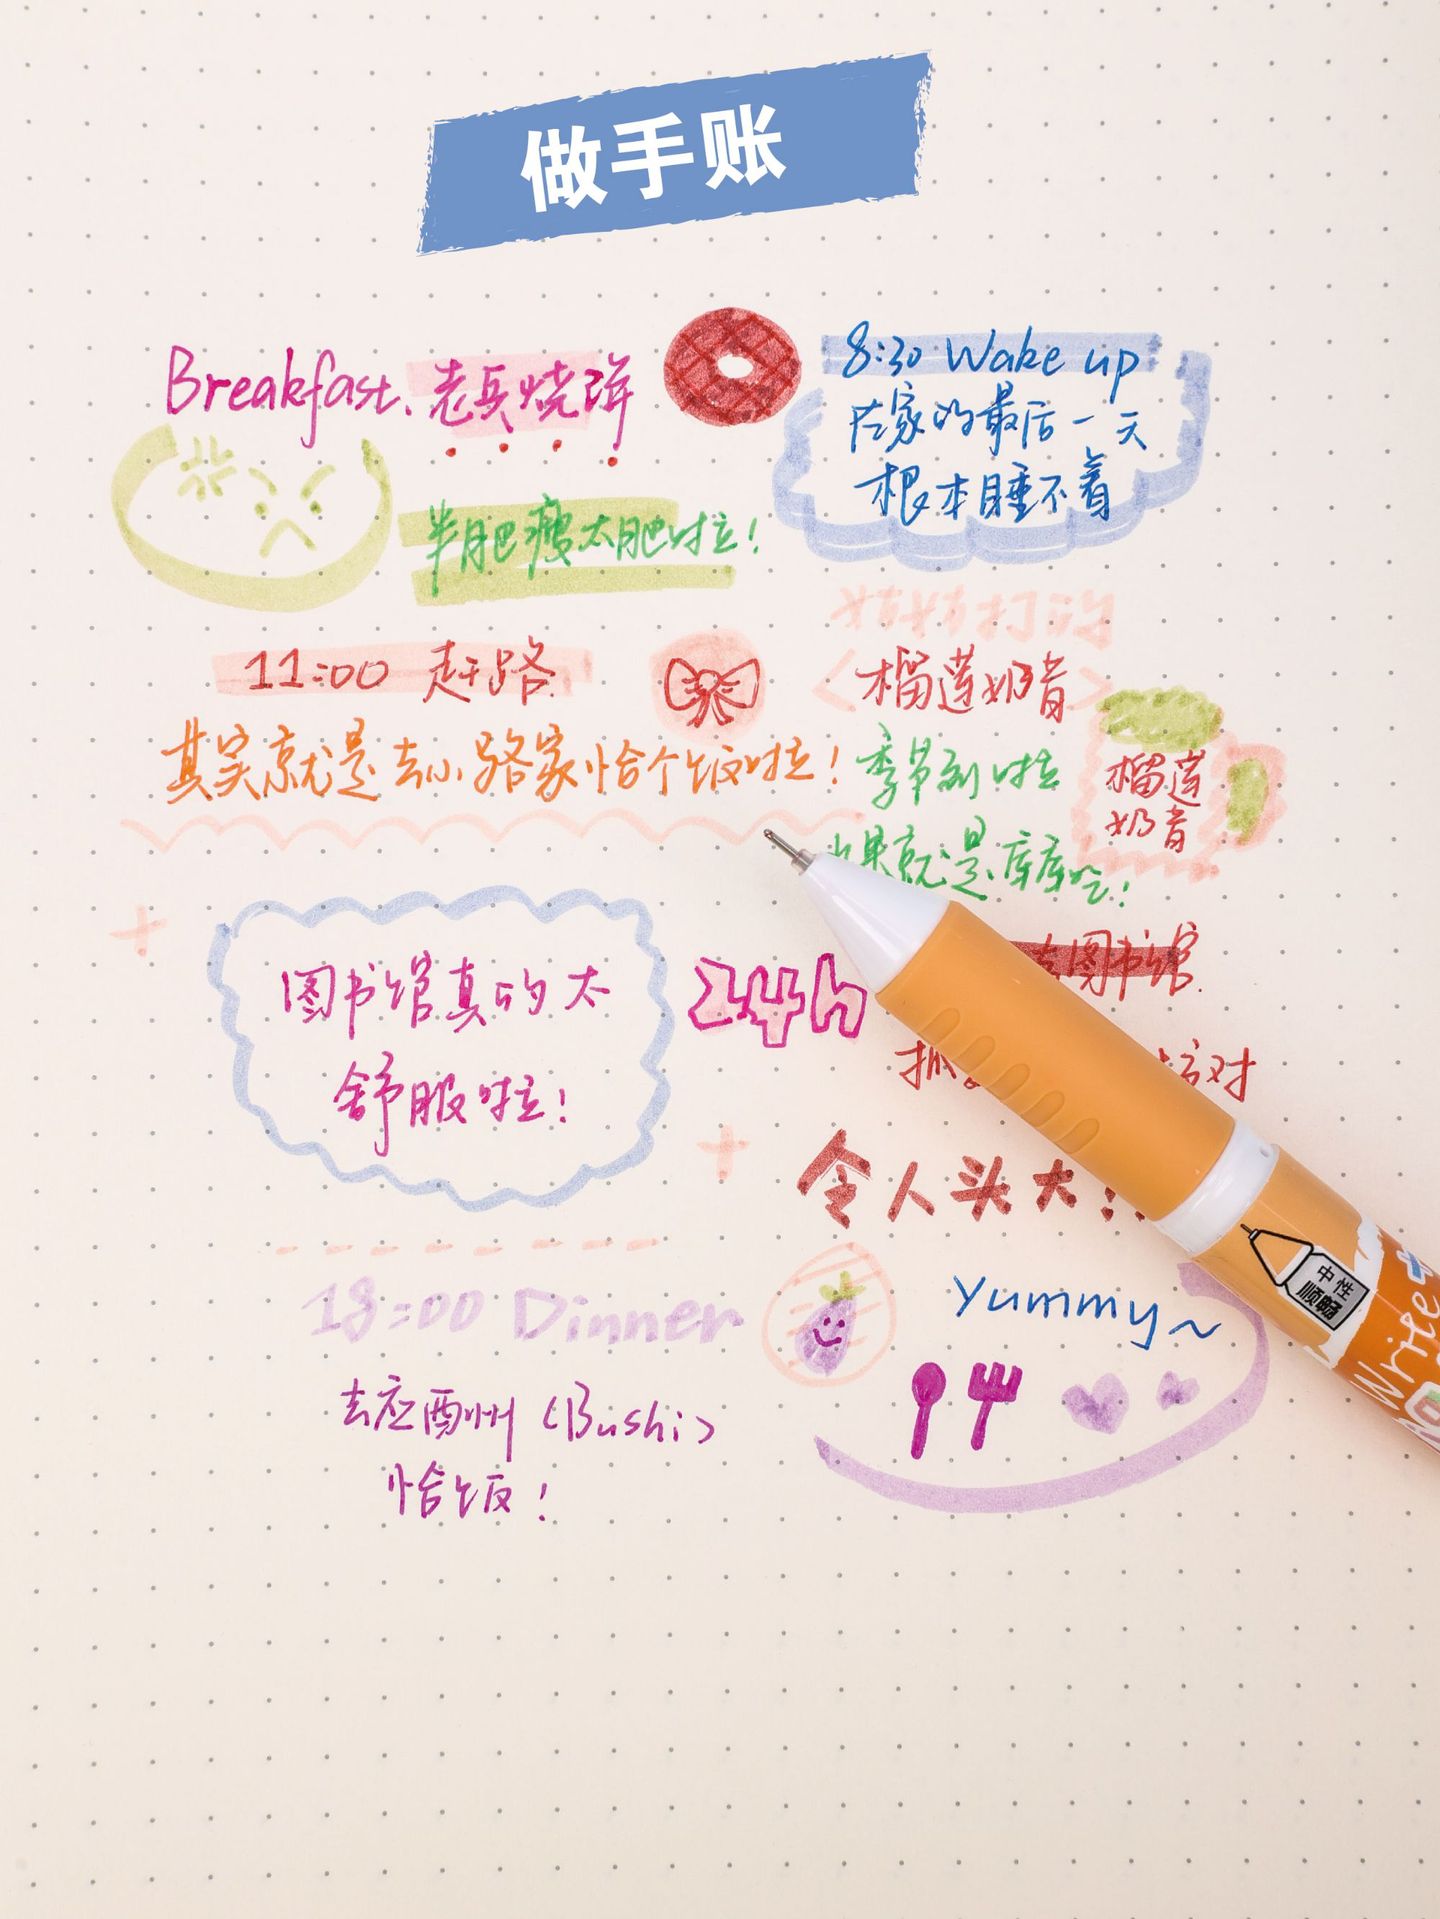 做手账
Breakfast、老兵烧饼
8:30 Wake up
在家的最后一天
根本睡不着
半肥瘦太肥啦！
姑姑打的
<榴莲奶昔>
11:00 赶路
其实就是去小路家恰个饭啦！
季节到啦
水果就是库库吃！
榴莲
奶昔
图书馆真的太
舒服啦！
24h
去图书馆
抓
核对
令人头大！！
18:00 Dinner
去应酬州（Bushi）
恰饭！
Yummy～
中性
顺畅
Write